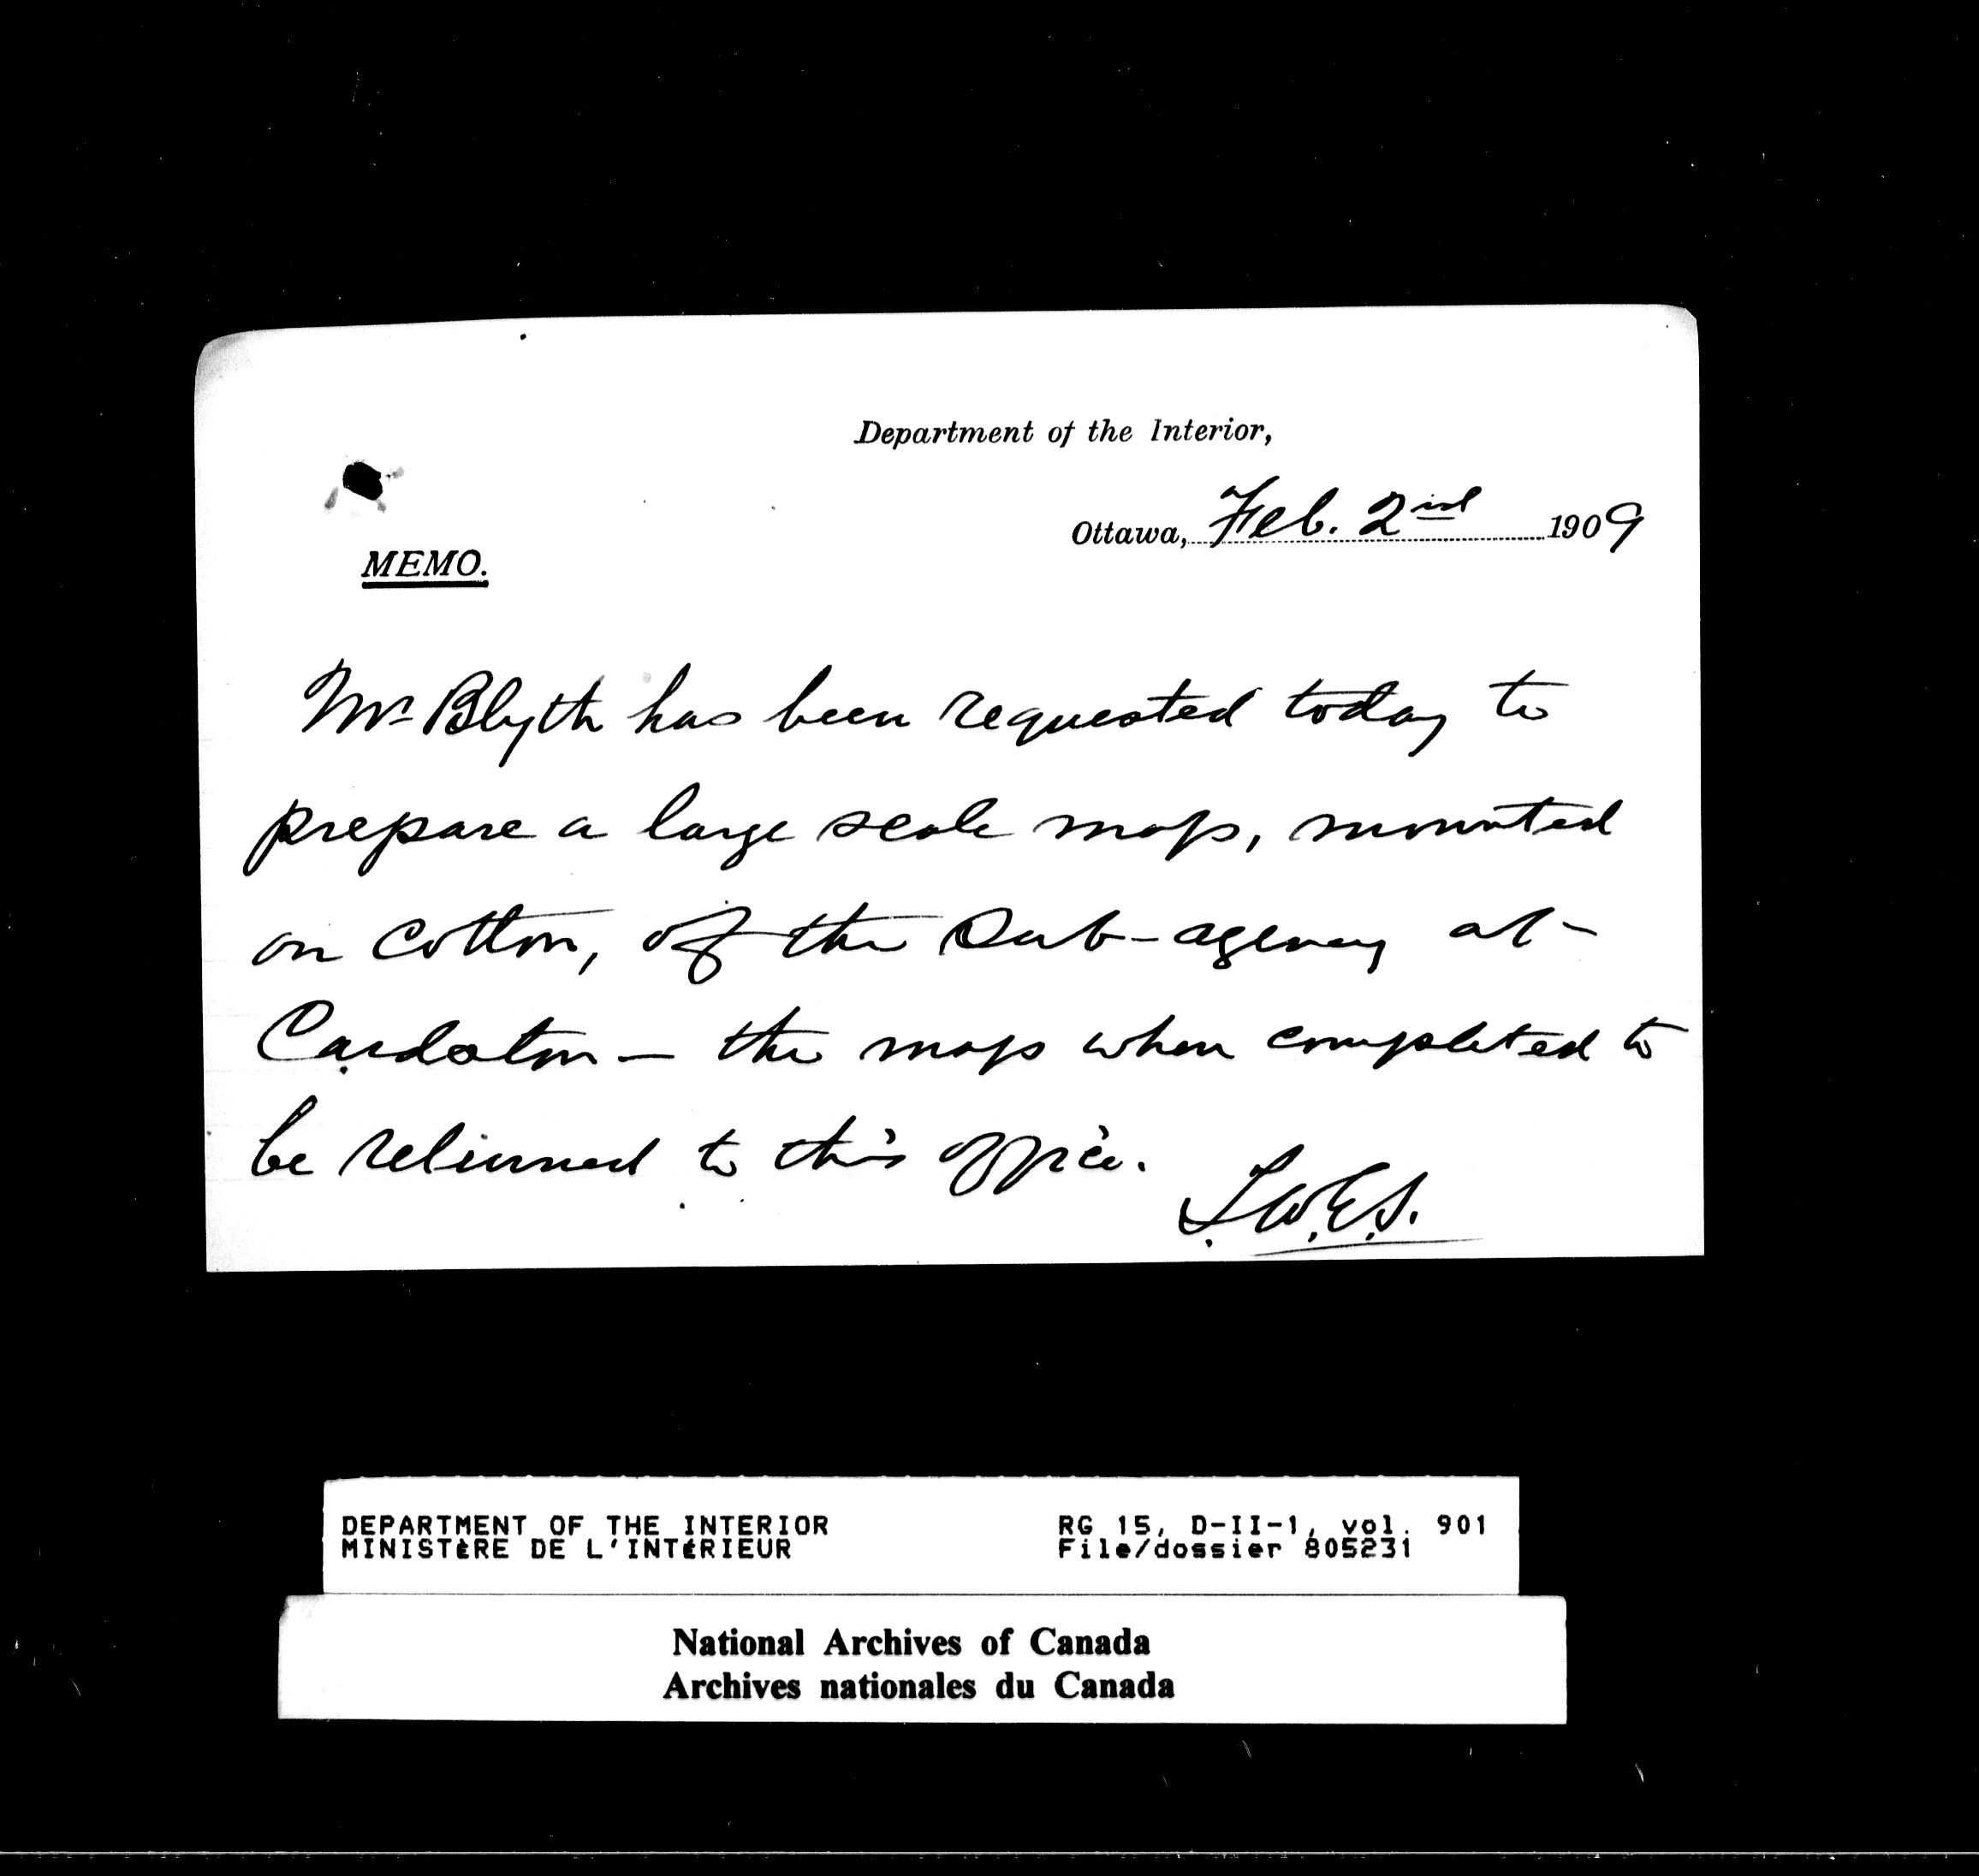 Department of the Interior,
Ottawa, Feb. 2nd 1909
MEMO.
Mr Blyth has been requested today to
prepare a large scale map, mounted
on cotton, of the Sub-agency at
Cardston — the map when completed to
be returned to this office.
DEPARTMENT OF THE INTERIOR
MINISTÈRE DE L'INTÉRIEUR
RG 15, D-II-1, vol. 901
File/dossier 805231
National Archives of Canada
Archives nationales du Canada